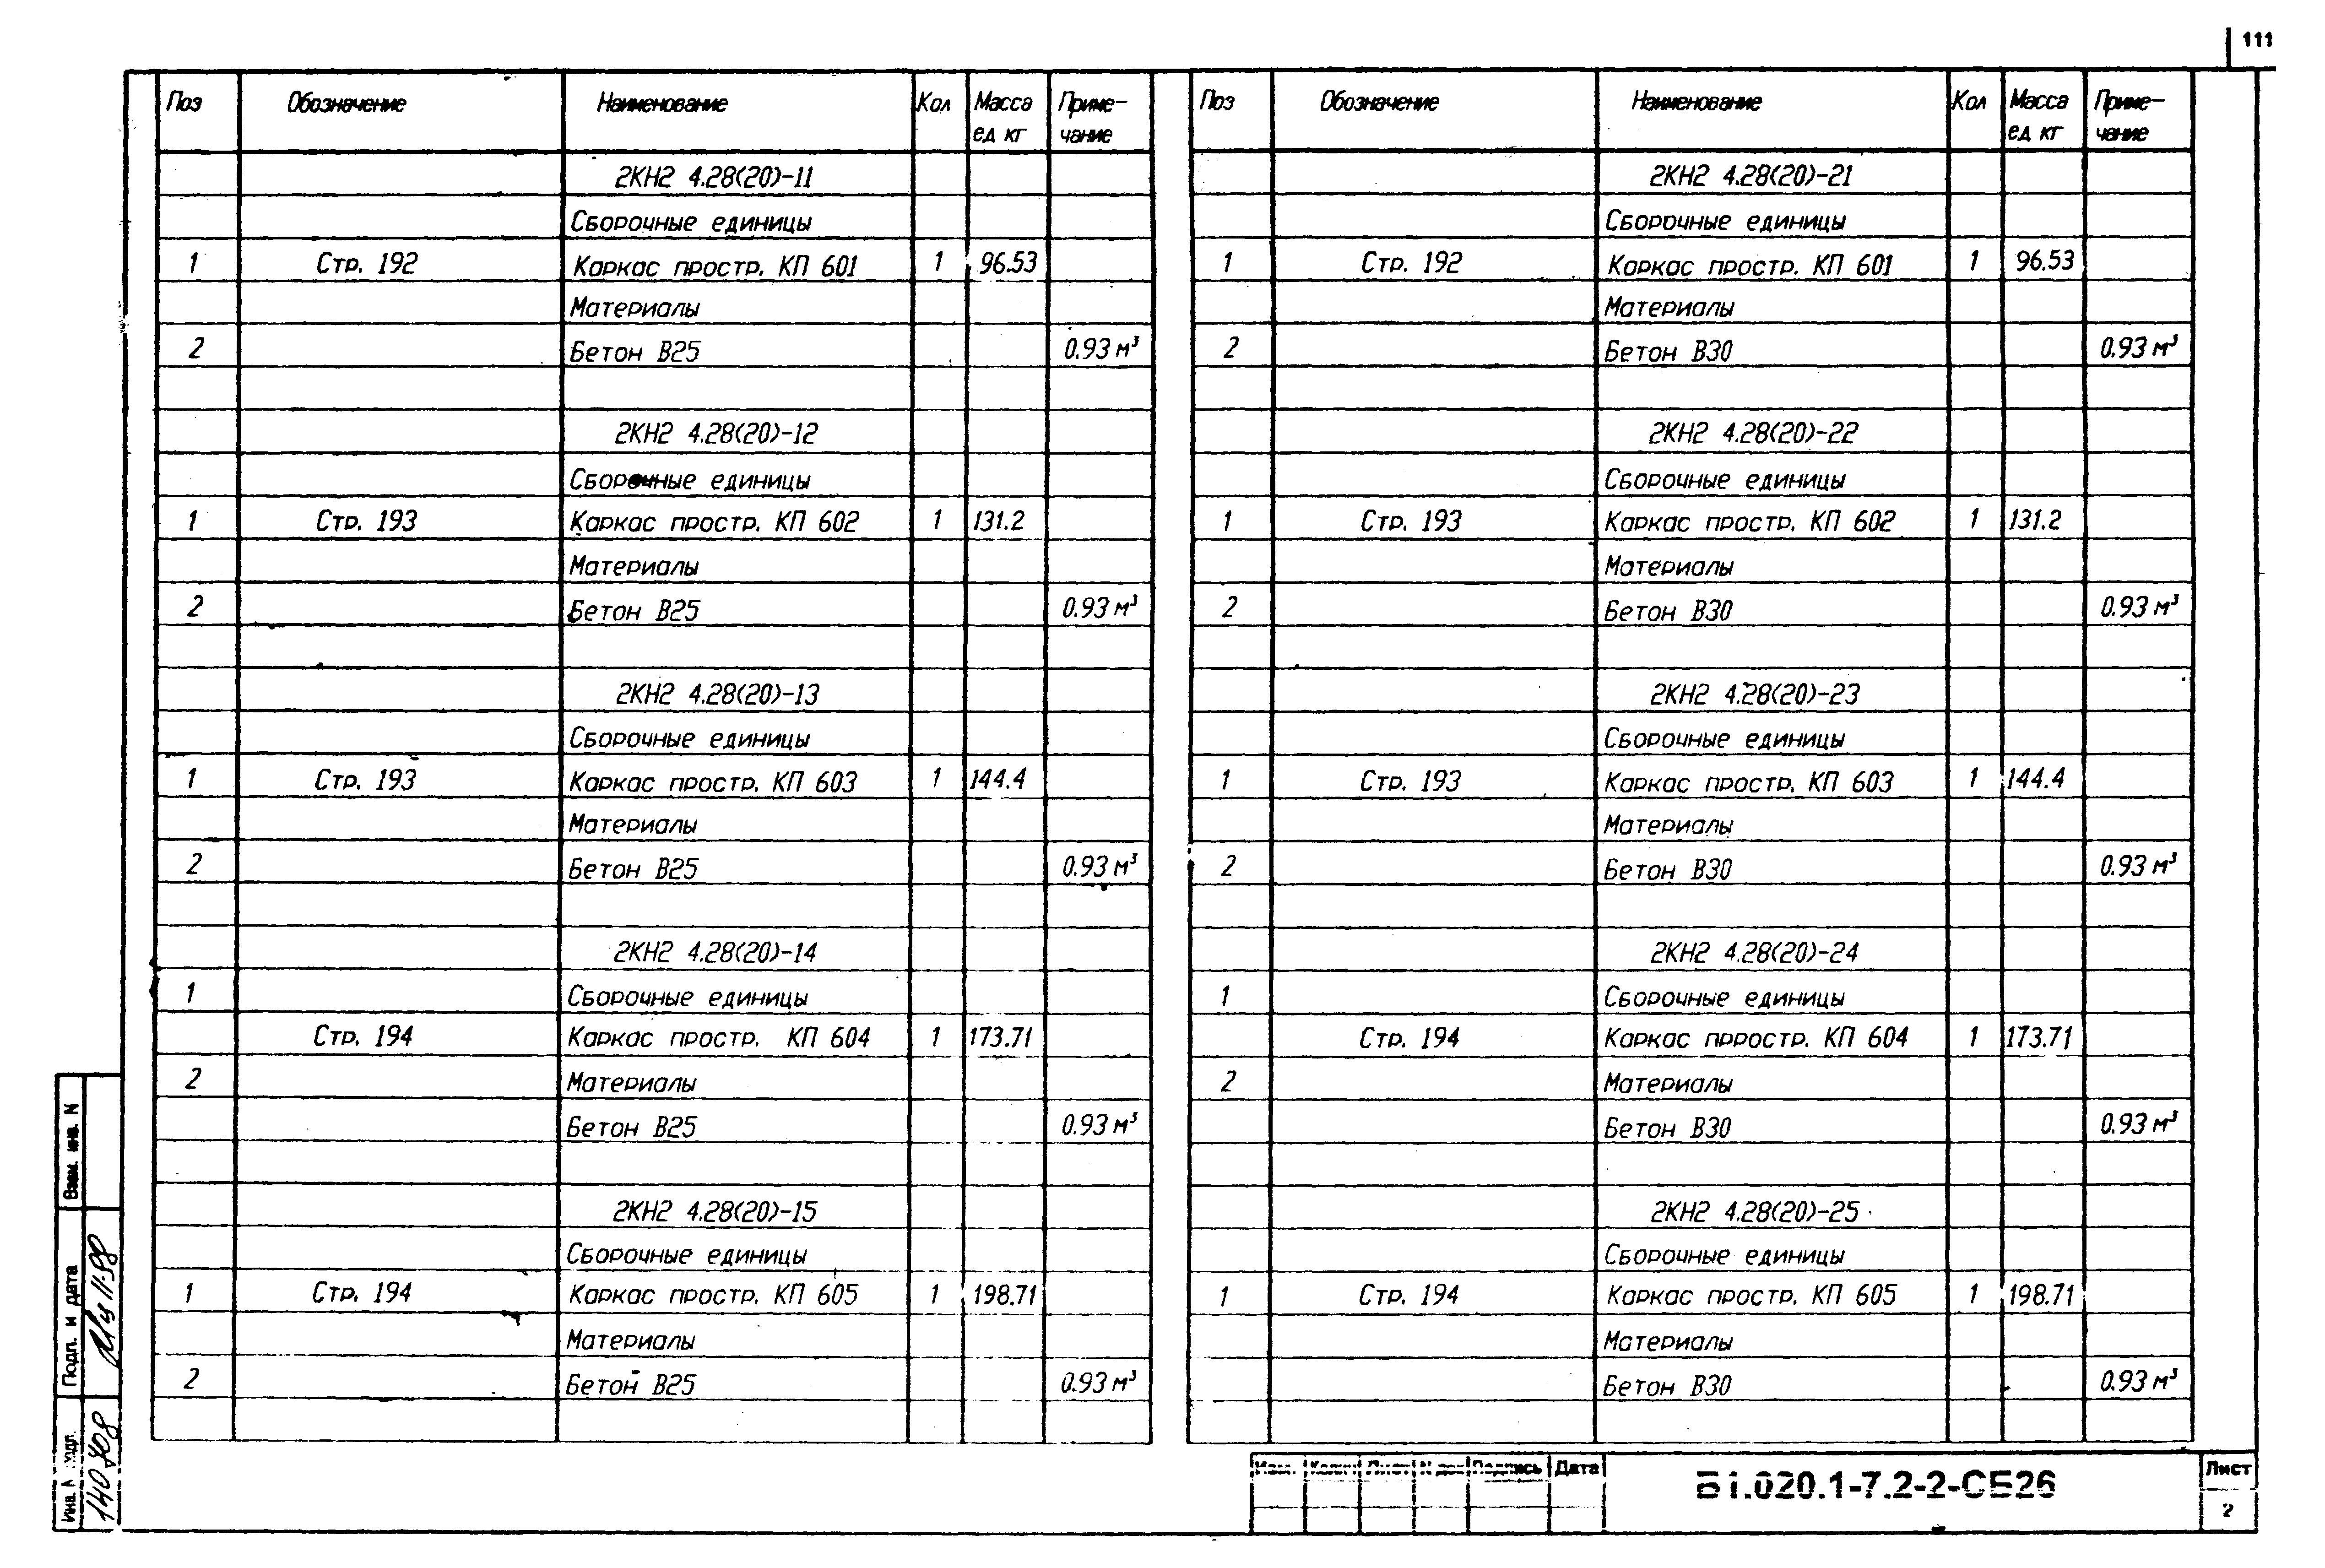 111
Поз Обозначение Наименование Кол Масса ед кг Приме-чание
2КН2 4.28(20)-11
Сборочные единицы
1 Стр. 192 Каркас простр. КП 601 1 96.53
Материалы
2 Бетон В25 0.93 м³
2КН2 4.28(20)-12
Сборочные единицы
1 Стр. 193 Каркас простр. КП 602 1 131.2
Материалы
2 Бетон В25 0.93 м³
2КН2 4.28(20)-13
Сборочные единицы
1 Стр. 193 Каркас простр. КП 603 1 144.4
Материалы
2 Бетон В25 0.93 м³
2КН2 4.28(20)-14
1 Сборочные единицы
Стр. 194 Каркас простр. КП 604 1 173.71
2 Материалы
Бетон В25 0.93 м³
2КН2 4.28(20)-15
Сборочные единицы
1 Стр. 194 Каркас простр. КП 605 1 198.71
Материалы
2 Бетон В25 0.93 м³
Поз Обозначение Наименование Кол Масса ед кг Приме-чание
2КН2 4.28(20)-21
Сборочные единицы
1 Стр. 192 Каркас простр. КП 601 1 96.53
Материалы
2 Бетон В30 0.93 м³
2КН2 4.28(20)-22
Сборочные единицы
1 Стр. 193 Каркас простр. КП 602 1 131.2
Материалы
2 Бетон В30 0.93 м³
2КН2 4.28(20)-23
Сборочные единицы
1 Стр. 193 Каркас простр. КП 603 1 144.4
Материалы
2 Бетон В30 0.93 м³
2КН2 4.28(20)-24
1 Сборочные единицы
Стр. 194 Каркас прростр. КП 604 1 173.71
2 Материалы
Бетон В30 0.93 м³
2КН2 4.28(20)-25
Сборочные единицы
1 Стр. 194 Каркас простр. КП 605 1 198.71
Материалы
Бетон В30 0.93 м³
Взам. инв. N
Подп. и дата
11.99
Инв. N подл.
140708
Изм. Колич Лист N док Подпись Дата
Б1.020.1-7.2-2-СБ26
Лист
2